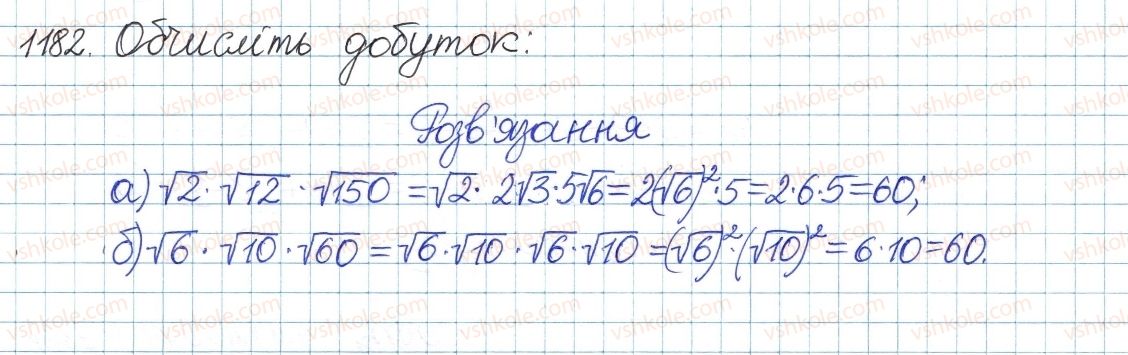 1182. Обчисліть добуток:
Розв'язання
а) √2 · √12 · √150 = √2 · 2√3 · 5√6 = 2(√6)² · 5 = 2 · 6 · 5 = 60;
б) √6 · √10 · √60 = √6 · √10 · √6 · √10 = (√6)² · (√10)² = 6 · 10 = 60.